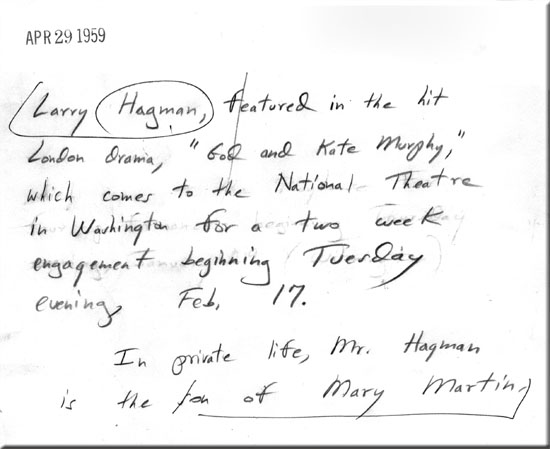 APR 29 1959
Larry Hagman, featured in the hit
London drama, "God and Kate Murphy,"
which comes to the National Theatre
in Washington for a two week
engagement beginning Tuesday
evening, Feb. 17.
In private life, Mr. Hagman
is the son of Mary Martin.